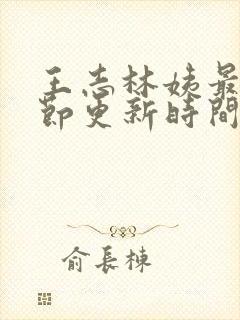 王志林姨最
節更新時間
俞長棟